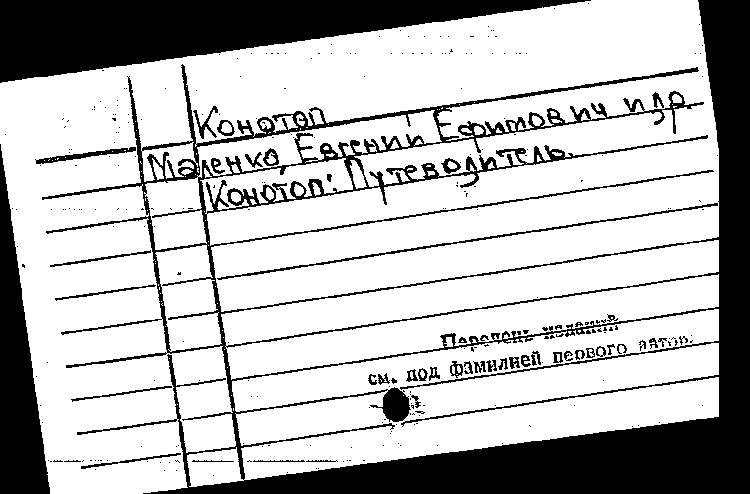 Конотоп
Маленко, Евгений Ефимович и др.
Конотоп: Путеводитель.
Перечень изданий
см. под фамилией первого автор.